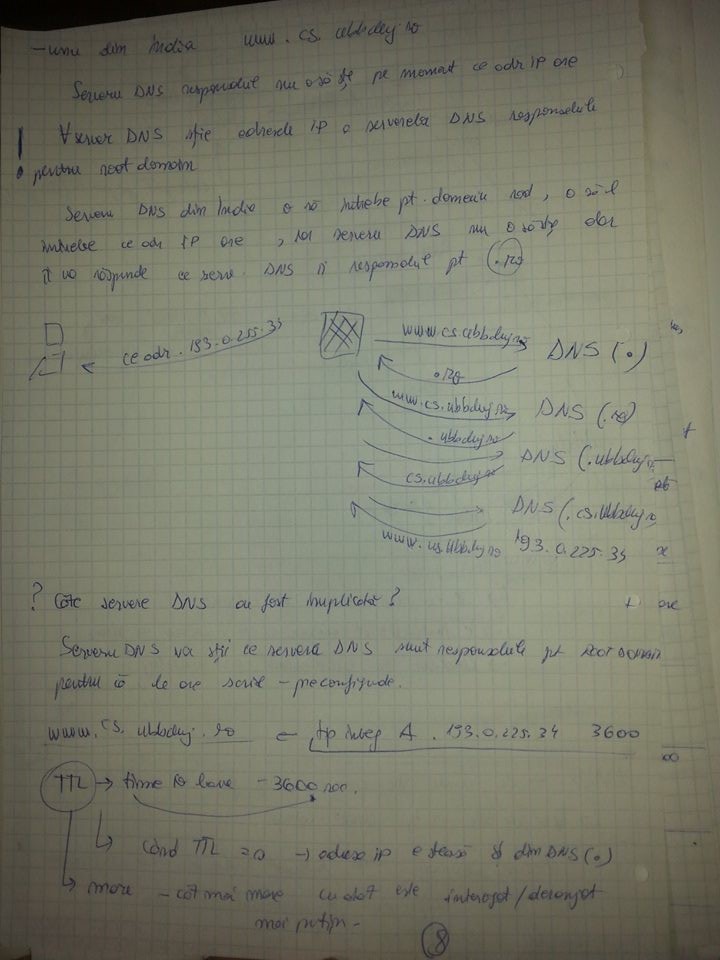 - unu din India www.cs.ubbcluj.ro
Serveru DNS responsabil nu o să știe pe moment ce adr IP are
∀ server DNS știe adresele IP a serverelor DNS responsabile
! pentru root domain
Serveru DNS din India o să întrebe pt. domeniu rad, o să-l
întrebe ce adr IP are, iar serveru DNS nu o să știe dar
îi va răspunde ce serv. DNS îi responsabil pt .ro
ce adr. 193.0.225.34
www.cs.ubbcluj.ro DNS (.)
.ro
www.cs.ubbcluj.ro DNS (.ro)
.ubbcluj.ro
DNS (.ubbcluj.
cs.ubbcluj.ro
DNS (.cs.ubbcluj.ro
www.cs.ubbcluj.ro 193.0.225.34
? Câte servere DNS au fost implicate?
Serveru DNS va știi ce servere DNS sunt responsabile pt ROOT DOMAIN
pentru că le are scrise - preconfigurate.
www.cs.ubbcluj.ro ← tip înreg A . 193.0.225.34 3600
TTL → time to leave - 3600 sec.
↳ Când TTL = 0 → adresa IP e ștearsă și din DNS (.)
↳ mare - cât mai mare cu atât este interogat/deranjat
mai puțin -
8